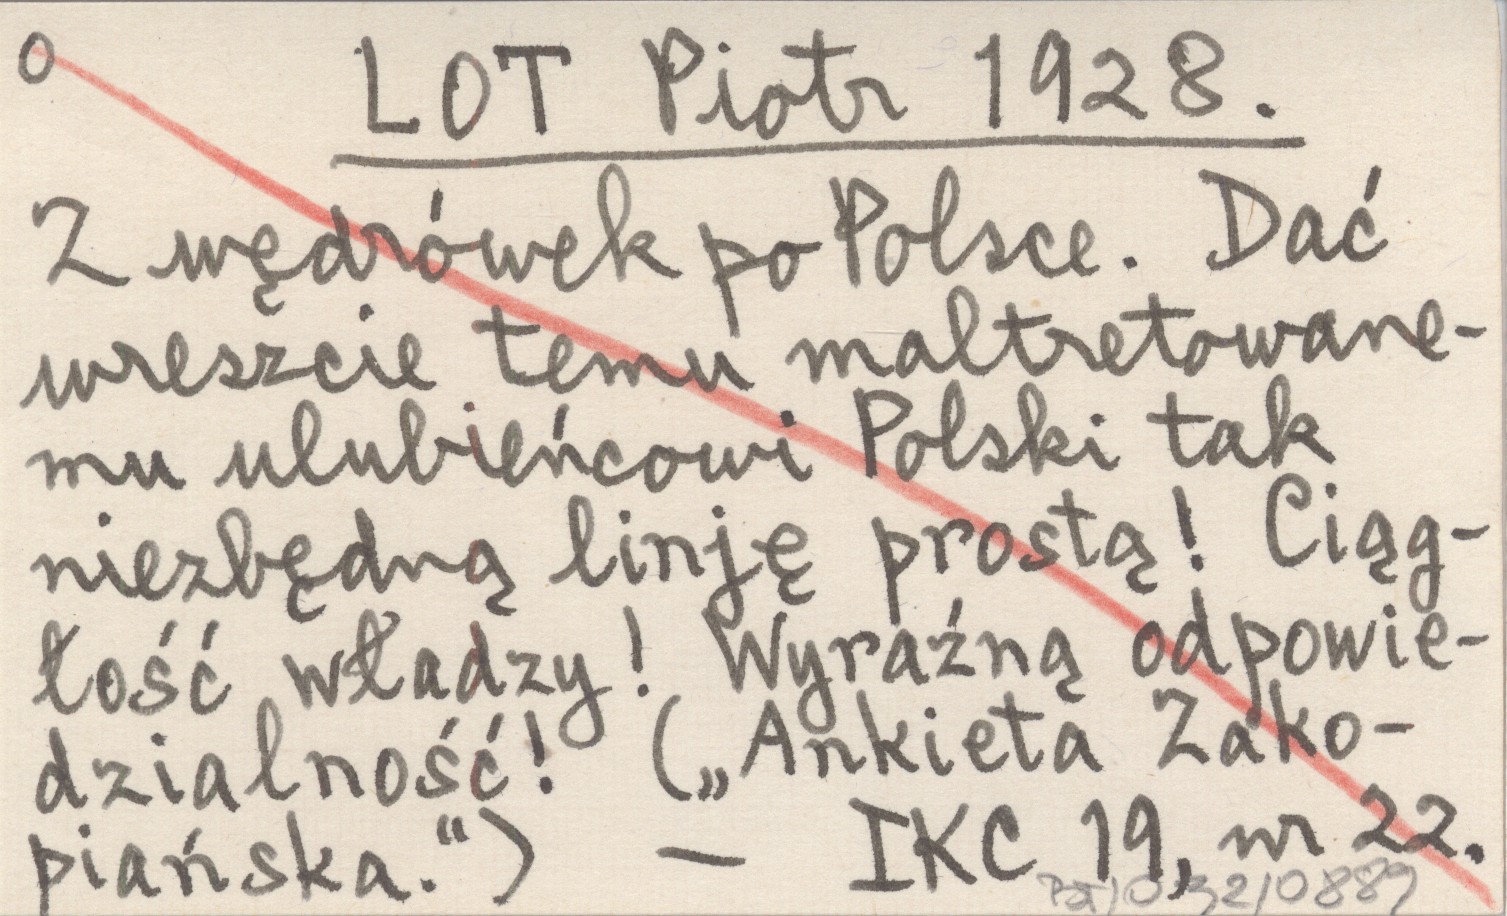 O LOT Piotr 1928.
Z wędrówek po Polsce. Dać
wreszcie temu maltretowane-
mu ulubieńcowi Polski tak
niezbędną linję prostą! Ciąg-
łość władzy! Wyraźną odpowie-
dzialność! („Ankieta Zako-
piańska.“) — IKC 19, nr 22.